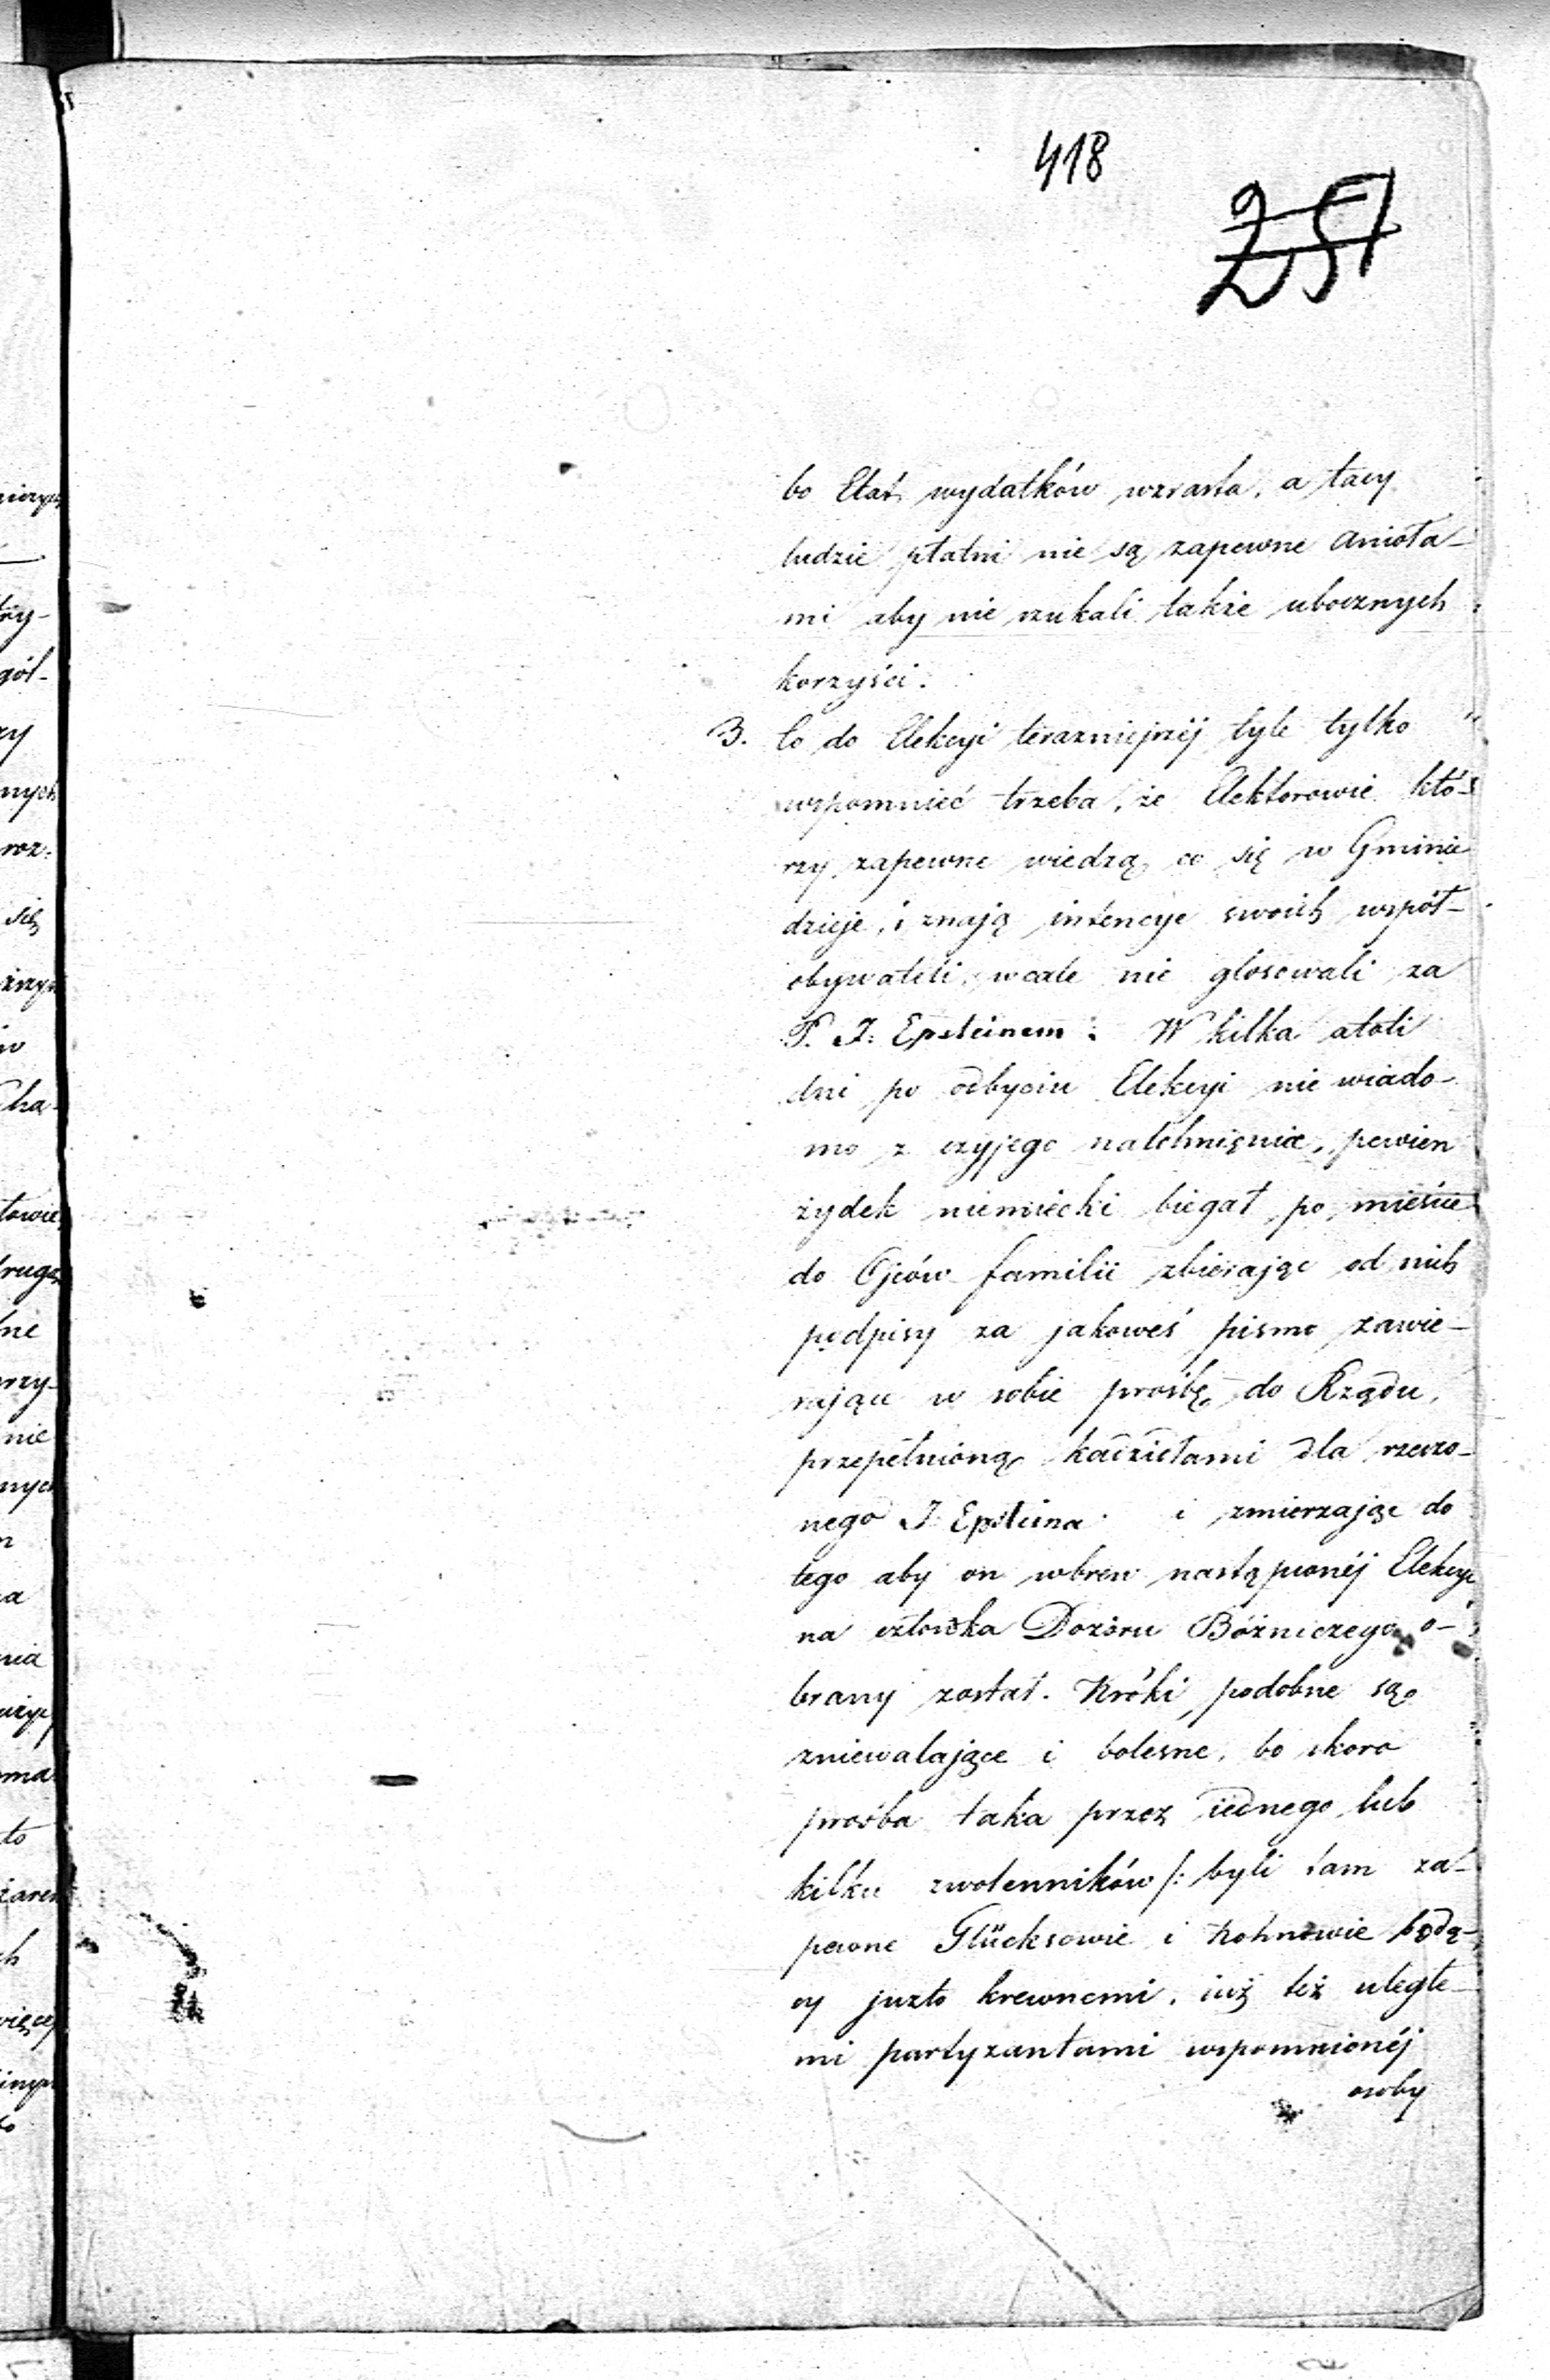 418
251
bo Etat wydatków wzrasta, a tacy
ludzie płatni nie są zapewne anioła-
mi aby nie szukali także ubocznych
korzyści.
3. Co do Elekcyi terazniejszéj tyle tylko
wspomnieć trzeba, że Elektorowie któ-
rzy zapewne wiedzą co się w Gminie
dzieje, i znają intencye swoich współ-
obywateli, wcale nie głosowali za
P. J. Epsteinem. W kilka atoli
dni po odbyciu Elekcyi nie wiado-
mo z czyjego natchnienia, pewien
żydek niemiecki biegał po mieście
do Ojców familii zbierając od nich
podpisy za jakoweś pismo zawie-
rające w sobie prośbę do Rządu,
przepełnioną kadzidłami dla rzeczo-
nego J. Epsteina i zmierzające do
tego aby on wbrew nastąpionéj Elekcyi
na członka Dozoru Bóżniczego o-
brany został. Kroki podobne są
zniewalające i bolesne, bo skoro
prośba taka przez iednego lub
kilku zwolenników /: byli tam za-
pewne Glücksowie i Kohnowie będą-
cy juzto krewnemi, iuż też uległe-
mi partyzantami wspomnionéj
osoby